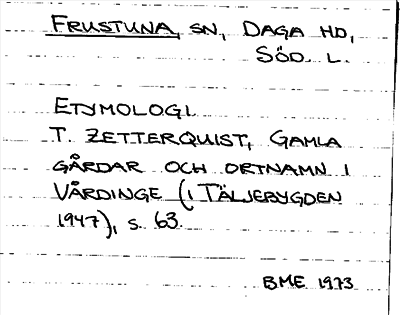 FRUSTUNA SN, DAGA HD,
SÖD. L.
ETYMOLOGI.
T. ZETTERQUIST, GAMLA
GÅRDAR OCH ORTNAMN I
VÅRDINGE (I TÄLJEBYGDEN
1947), S. 63.
BME 1973